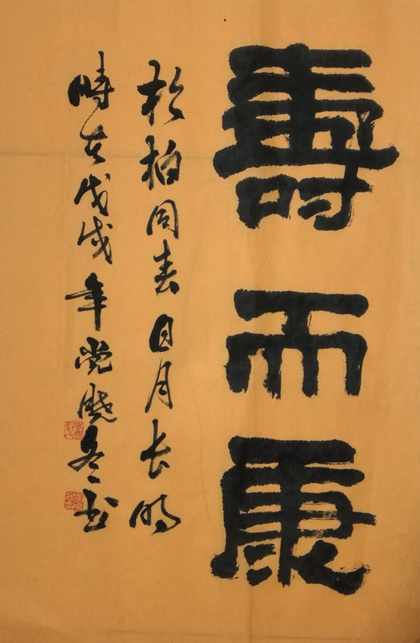 壽而康
松柏同春日月长明
時在戊戌年党晓冬书